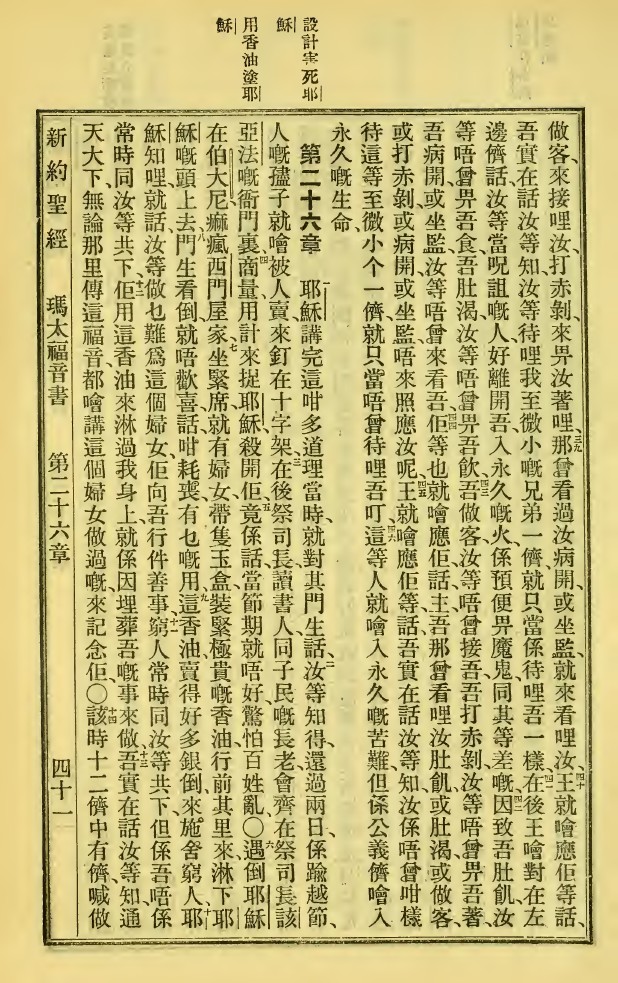 設計害死耶
穌
用香油塗耶
穌
做客、來接哩汝、打赤剝、來畀汝著哩、三九那曾看過汝病開、或坐監、就來看哩汝、四十王就噲應佢等話、
吾實在話汝等知、汝等待哩我至微小嘅兄弟一儕、就只當係待哩吾一樣、四一在後王噲對在左
邊儕話、汝等當呪詛嘅人、好離開吾、入永久嘅火、係預便畀魔鬼同其等差嘅、四二因致吾肚飢、汝
等唔曾畀吾食、吾肚渴、汝等唔曾畀吾飲、四三吾做客、汝等唔曾接吾、吾打赤剝、汝等唔曾畀吾著、
吾病開或坐監、汝等唔曾來看吾、四四佢等也就噲應佢話、主、吾那曾看哩汝肚飢、或肚渴、或做客、
或打赤剝、或病開、或坐監、唔來照應汝呢、四五王就噲應佢等話、吾實在話汝等知、汝係唔曾咁樣
待這等至微小个一儕、就只當唔曾待哩吾叮、四六這等人就噲入永久嘅苦難、但係公義儕噲入
永久嘅生命、
第二十六章　一耶穌講完這咁多道理、當時就對其門生話、二汝等知得、還過兩日、係踰越節、
人嘅孻子就噲被人賣、來釘在十字架、三在後祭司長讀書人、同子民嘅長老、會齊在祭司長該
亞法嘅衙門裏、四商量用計來捉耶穌殺開佢、五竟係話、當節期就唔好、驚怕百姓亂、〇六遇倒耶穌
在伯大尼痲瘋西門屋家、七坐緊席、就有婦女帶隻玉盒、裝緊極貴嘅香油、行前其里來淋下耶
穌嘅頭上去、八門生看倒就唔歡喜、話、咁耗喪有乜嘅用、九這香油、賣得好多銀倒、來施舍窮人、十耶
穌知哩、就話汝等做乜難爲這個婦女、佢向吾行件善事、十一窮人常時同汝等共下、但係吾唔係
常時同汝等共下、十二佢用這香油來淋過我身上、就係因埋葬吾嘅事來做、十三吾實在話汝等知、通
天大下、無論那里傳這福音、都噲講這個婦女做過嘅來記念佢、〇十四該時十二儕中有儕喊做
新約聖經　瑪太福音書　第二十六章　四十一